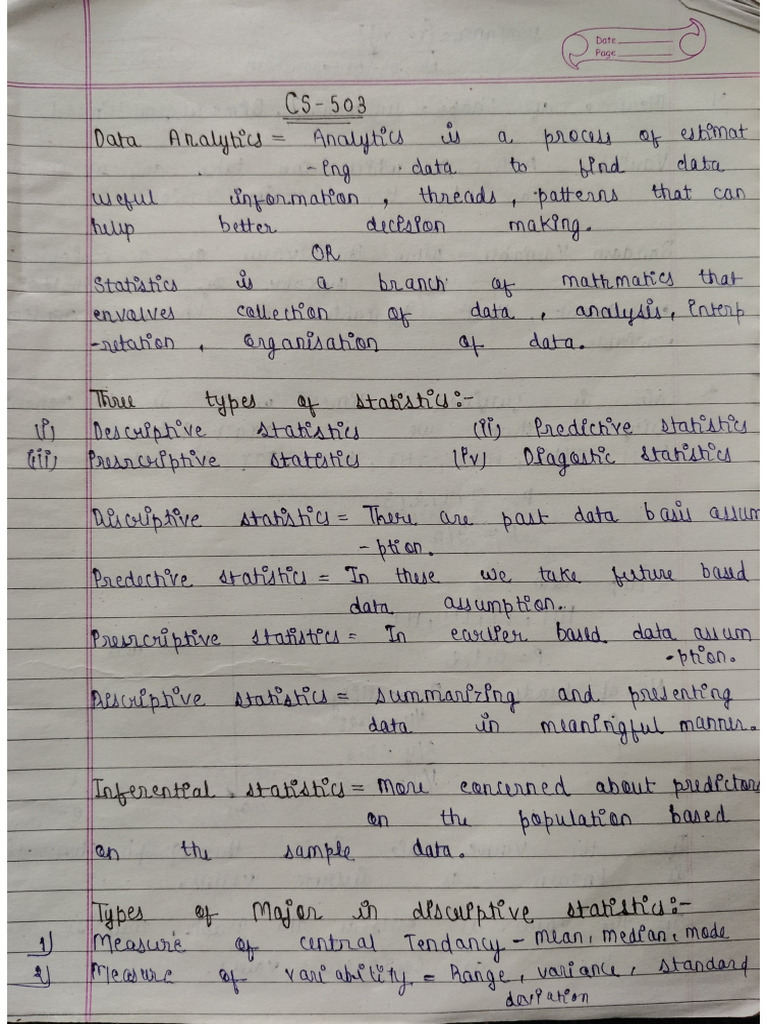 Date
Page
CS-503
Data Analytics = Analytics is a process of estimat
-ing data to find data
useful information, threads, patterns that can
help better decision making.
OR
Statistics is a branch of mathmatics that
envalves collection of data, analysis, interp
-retation, organisation of data.
Three types of statistics:-
(i) Descriptive statistics (ii) Predictive statistics
(iii) Presrcriptive statistics (iv) Diagostic statistics
Discriptive statistics = There are past data basis assum
-ption.
Predective statistics = In these we take future based
data assumption..
Presrcriptive statistics = In earlier based data assum
-ption.
Discriptive statistics = summarizing and presenting
data in meaningful manner.
Inferential statistics = More concerned about predictors
on the population based
on the sample data.
Types of Major in discriptive statistics:-
1) Measure of central Tendancy - mean, median, mode
2) Measure of variability = Range, variance, standard
deviation